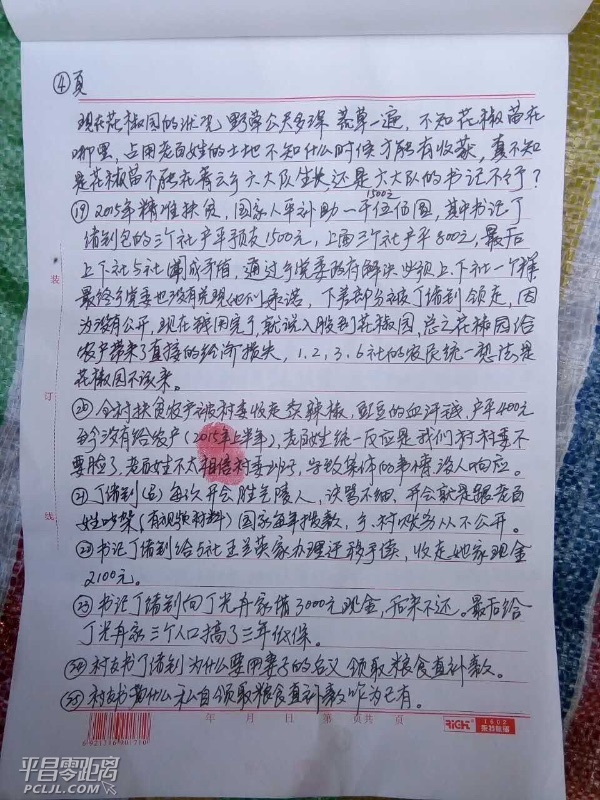 ④页
现在花椒园的状况,野草公尺多深 薅草一遍,不知花椒苗在
哪里,占用老百姓的土地不知什么时候才能有收获,真不知
是花椒苗不能在 六大队生长还是六大队的书记不行?
1500元
⑲2015年精准扶贫,国家人平补助一千伍佰圆,其中书记丁
绪剑包的三个社户平预支1500元,上面三个社户平800元,最后
上下社与社闹成矛盾,通过乡党委政府解决 必须上下社一个样
最终乡党委也没有兑现他们承诺,下差部分被丁绪剑领走,因
为没有公开,现在钱用完了,就说入股到花椒园,总之花椒园给
农户带来了直接的经济损失,1.2.3.6社的农民统一想法是
花椒园不该来。
⑳全村扶贫农户被村委收走卖辣椒,豇豆的血汗钱,户平400元
至今没有给农户(2015年上半年),老百姓统一反应是我们村村委不
要脸了,老百姓不太相信村委班子,导致集体的事情没人响应。
㉑丁绪剑 每次开会 人,诀骂不细,开会就是跟老百
姓吵架(有视频材料)国家每年拨款,乡.村账务从不公开。
㉒书记丁绪剑给5社 兰英家办理迁移手续,收走她家现金
2100元。
㉓书记丁绪剑向丁光舟家借3000元现金,后来不还。最后给
丁光舟家三个人口搞了三年低保。
㉔村支书丁绪剑为什么要用妻子的名义领取粮食直补款。
㉕村支书凭什么私自领取粮食直补款占为己有。
年 月 日 第 页共 页
RICH
1602
6921738901710
平昌零距离
PCLJL.COM